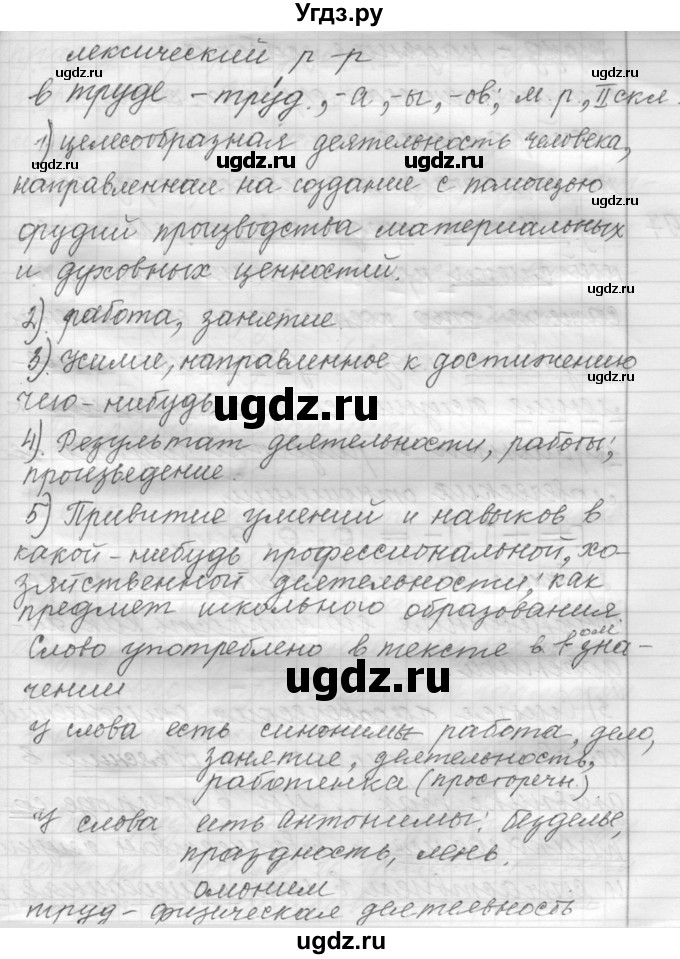 Угдз.ру
лексический р-р
в труде - труд., -а, -ы, -ов; м.р., II скл.
1) целесообразная деятельность человека,
направленная на создание с помощью
орудий производства материальных
и духовных ценностей.
2). работа, занятие
3). Усилие, направленное к достижению
чего-нибудь
4). Результат деятельности, работы,
произведение.
5) Привитие умений и навыков в
какой-нибудь профессиональной, хо-
зяйственной деятельности, как
предмет школьного образования.
Слово употреблено в тексте в 1-ом зна-
чении
У слова есть синонимы работа, дело,
занятие, деятельность,
работенка (просторечн.)
У слова есть антонимы: безделье,
праздность, лень.
омоним
труд - физическая деятельность
ugdz.ru